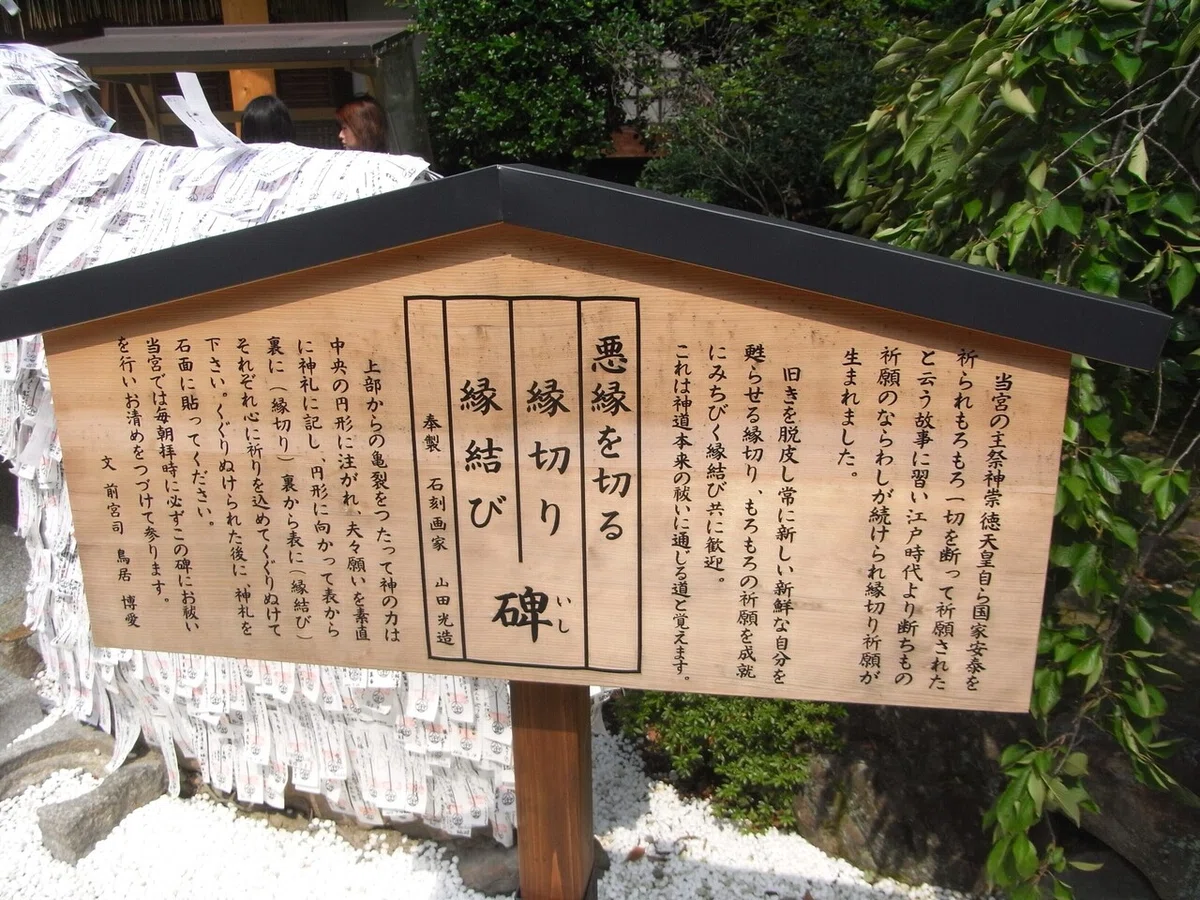 当宮の主祭神崇徳天皇自ら国家安泰を
祈られもろもろ一切を断って祈願された
と云う故事に習い江戸時代より断ちもの
祈願のならわしが続けられ縁切り祈願が
生まれました。
旧きを脱皮し常に新しい新鮮な自分を
甦らせる縁切り、もろもろの祈願を成就
にみちびく縁結び共に歓迎。
これは神道本来の祓いに通じる道と覚えます。
悪縁を切る
縁切り
縁結び
碑
いし
奉製 石刻画家 山田光造
上部からの亀裂をつたって神の力は
中央の円形に注がれ、夫々願いを素直
に神札に記し、円形に向かって表から
裏に（縁切り）裏から表に（縁結び）
それぞれ心に祈りを込めてくぐりぬけて
下さい。くぐりぬけられた後に、神札を
石面に貼ってください。
当宮では毎朝拝時に必ずこの碑にお祓い
を行いお清めをつづけて参ります。
文 前宮司 鳥居 博愛